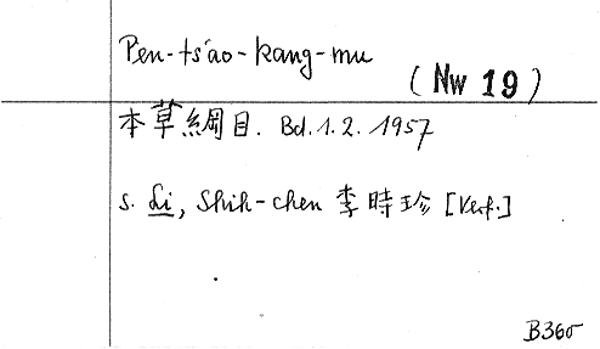 Pen-ts'ao-kang-mu
(Nw 19)
本草綱目. Bd. 1. 2. 1957
s. Li, Shih-chen 李時珍 [Verf.]
B360